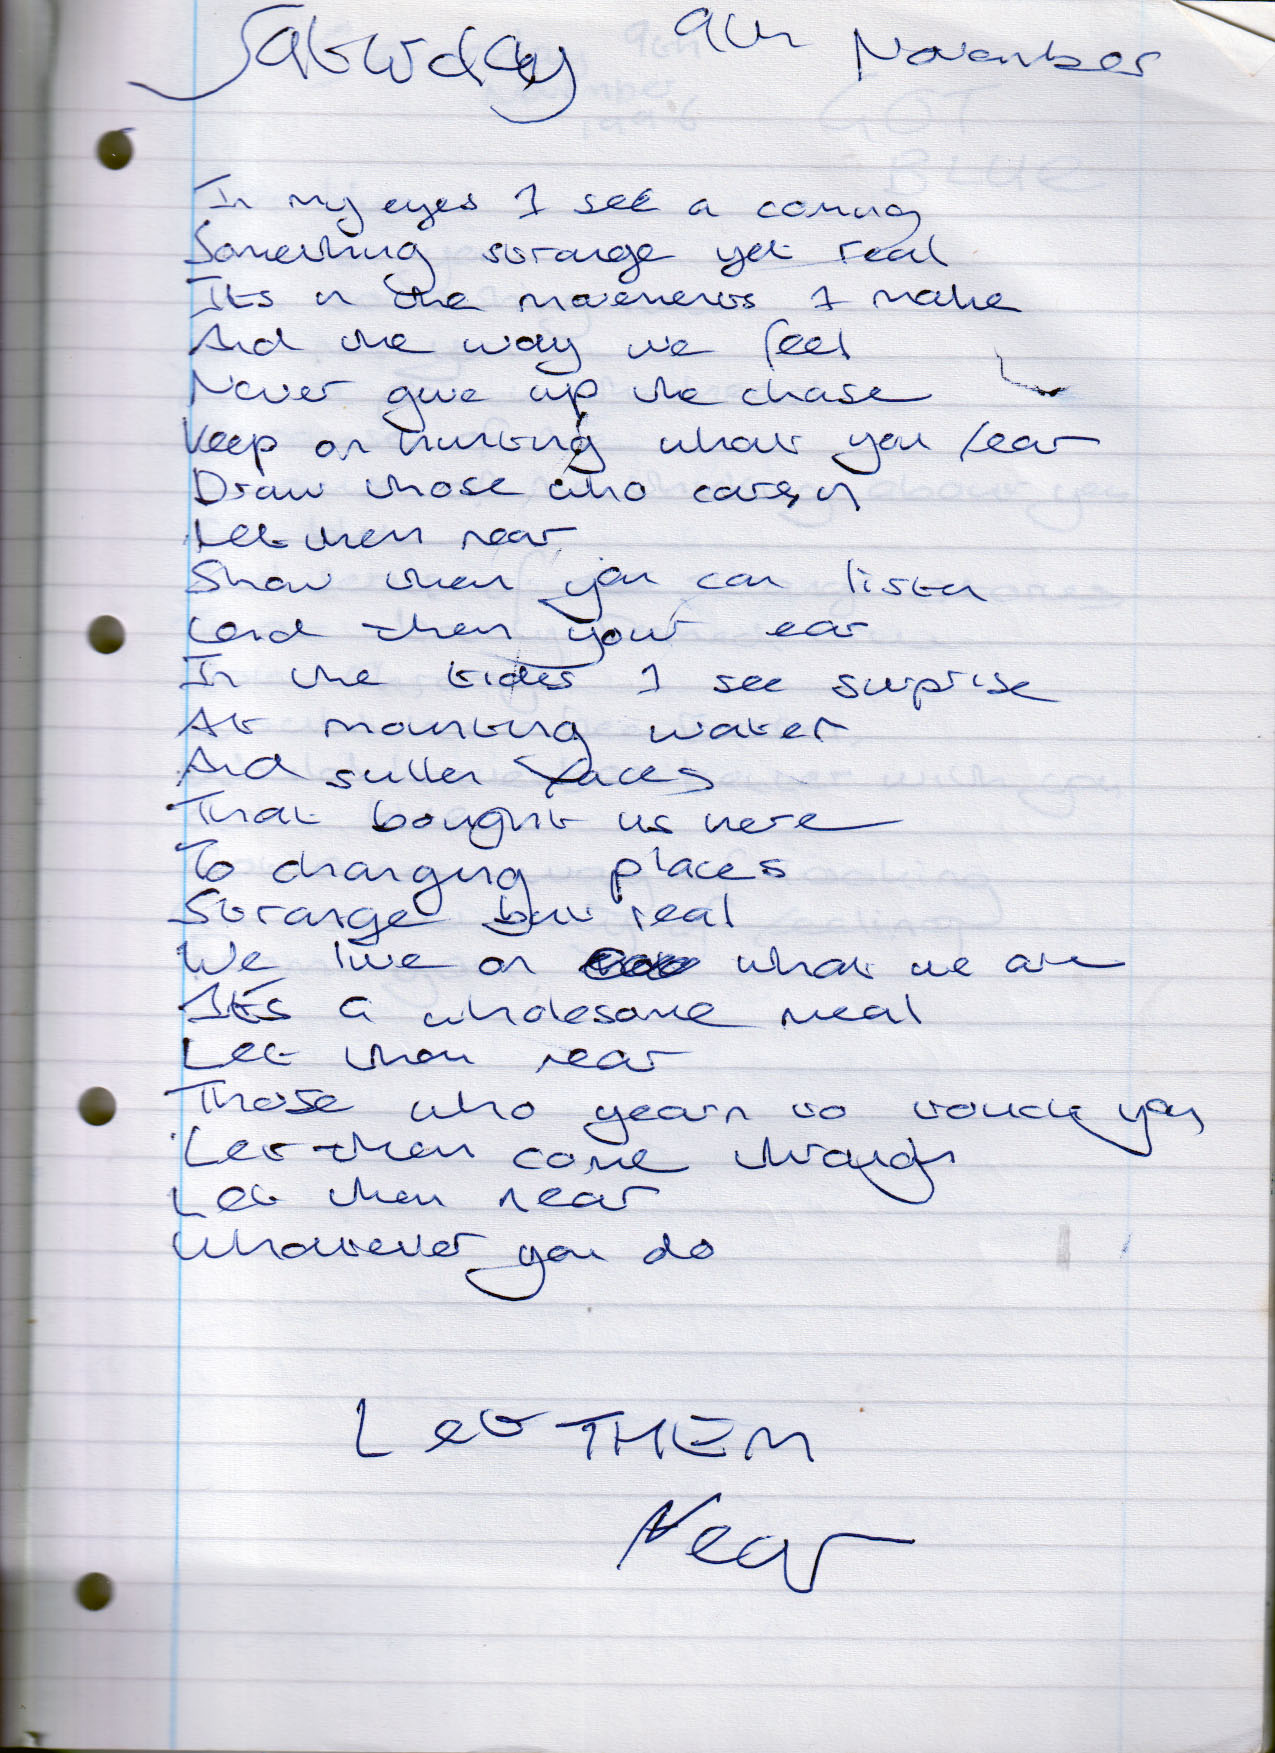 Saturday 9th November
In my eyes I see a coming
Something strange yet real
Its in the movements I make
And the way we feel
Never give up the chase
Keep on hunting what you fear
Draw those who care in
Let them near
Show them you can listen
Lend them your ear
In the tides I see surprise
At mounting water
And sullen faces
That bought us here
To changing places
Strange but real
We live on what we are
It's a wholesome meal
Let them near
Those who yearn to touch you
Let them come through
Let them near
Whatever you do
Let THEM
Near